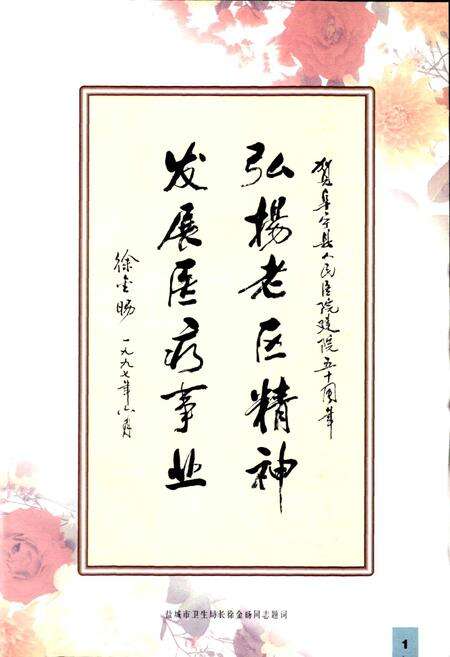 贺阜宁县人民医院建院五十周年
弘揚老区精神
发展医疗事业
徐金旸
一九九七年六月
盐城市卫生局长徐金旸同志题词
1